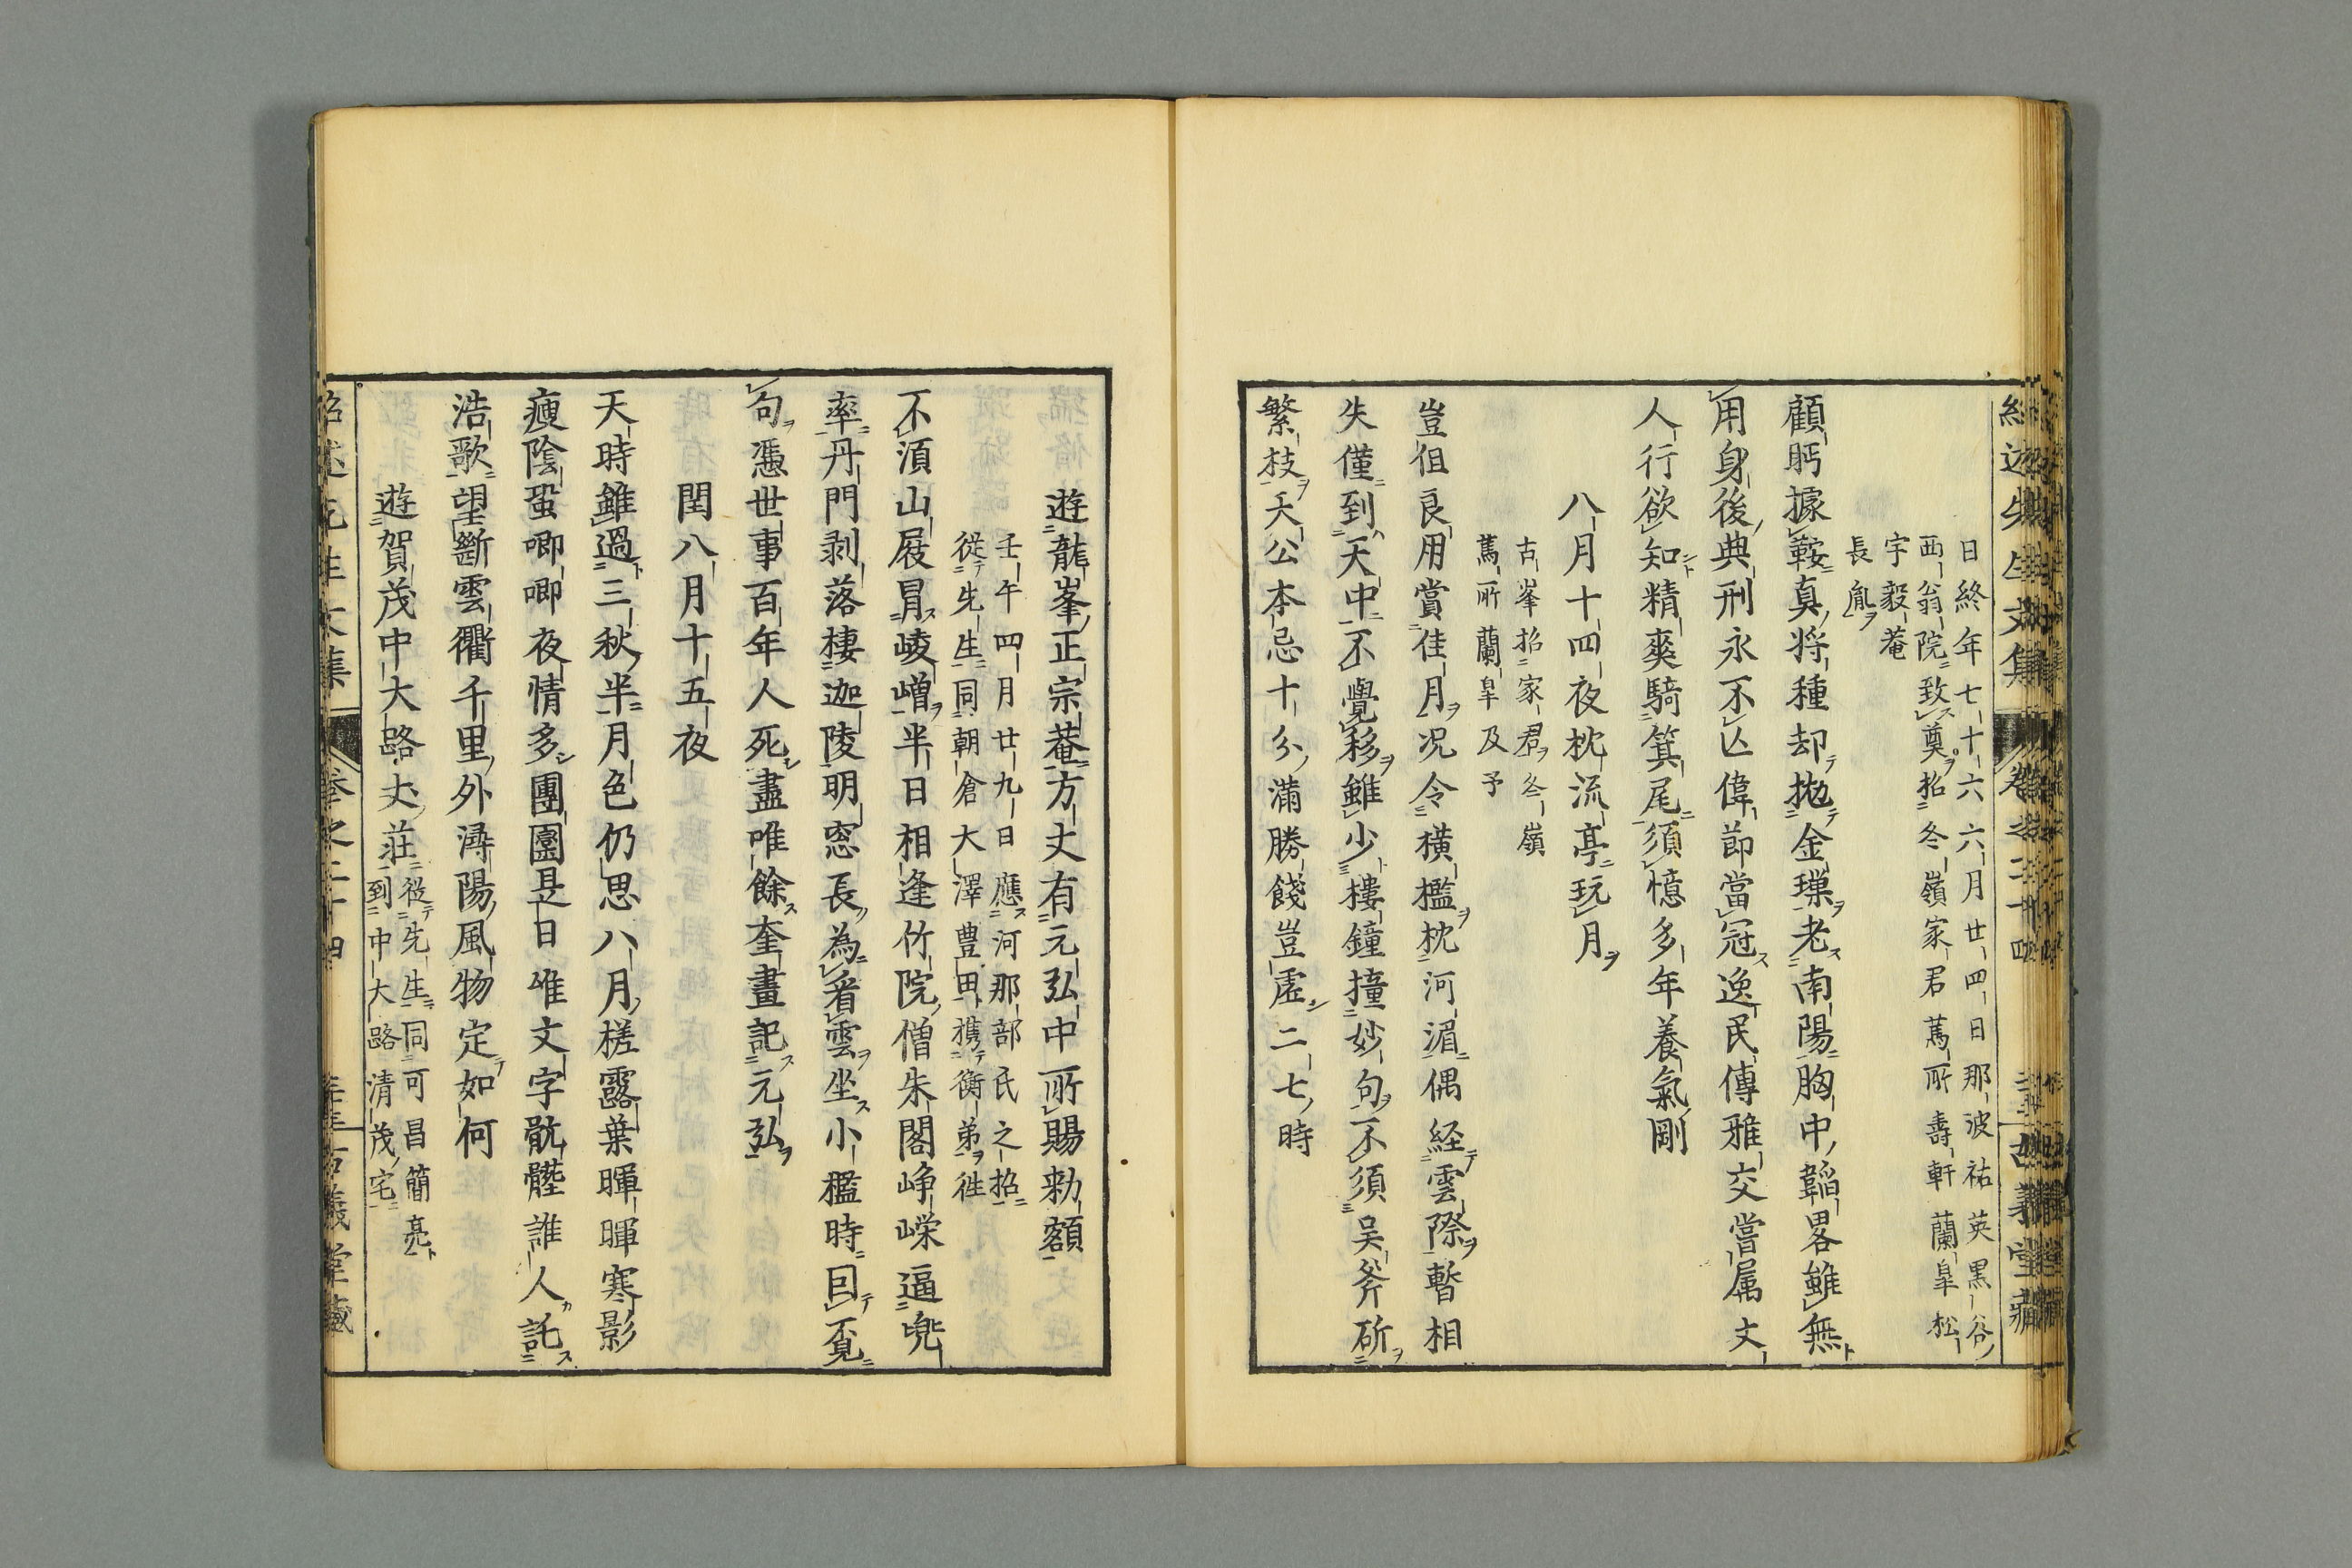 日終年七十六六月廿四日那波祐英黒谷
西翁院致奠招冬嶺家君蔿所壽軒蘭皐松
宇毅菴
長胤
顧眄據鞍真將種却抛金璅老南陽胸中韜畧雖無
用身後典刑永不亾偉節當冠逸民傳雅交嘗属文
人行欲知精爽騎箕尾須憶多年養氣剛
八月十四夜枕流亭玩月
古峯招家君冬嶺
蔿所蘭皐及予
豈徂良用賞佳月况令横檻枕河湄偶経雲際暫相
失僅到天中不覺移雖少樓鐘撞妙句不須吴斧斫
繁枝天公本忌十分滿勝餞豈虚二七時
遊龍峯正宗菴方丈有元弘中所賜勅額
壬午四月廿九日應河那部氏之招
從先生同朝倉大澤豊田携衡弟徃
不湏山屐冐崚嶒半日相逢竹院僧朱閣崢嶸逼兠
率丹門剥落棲迦陵明窓長為看雲坐小檻時因覔
句憑世事百年人死盡唯餘奎畫記元弘
閏八月十五夜
天時雖過三秋半月色仍思八月槎露葉暉暉寒影
瘦陰蛩唧唧夜情多團圞是日唯文字骯髒誰人託
浩歌望斷雲衢千里外潯陽風物定如何
遊賀茂中大路丈荘
從先生同可昌簡亮
到中大路清茂宅
紹述先生文集
卷之二十四
古義堂藏